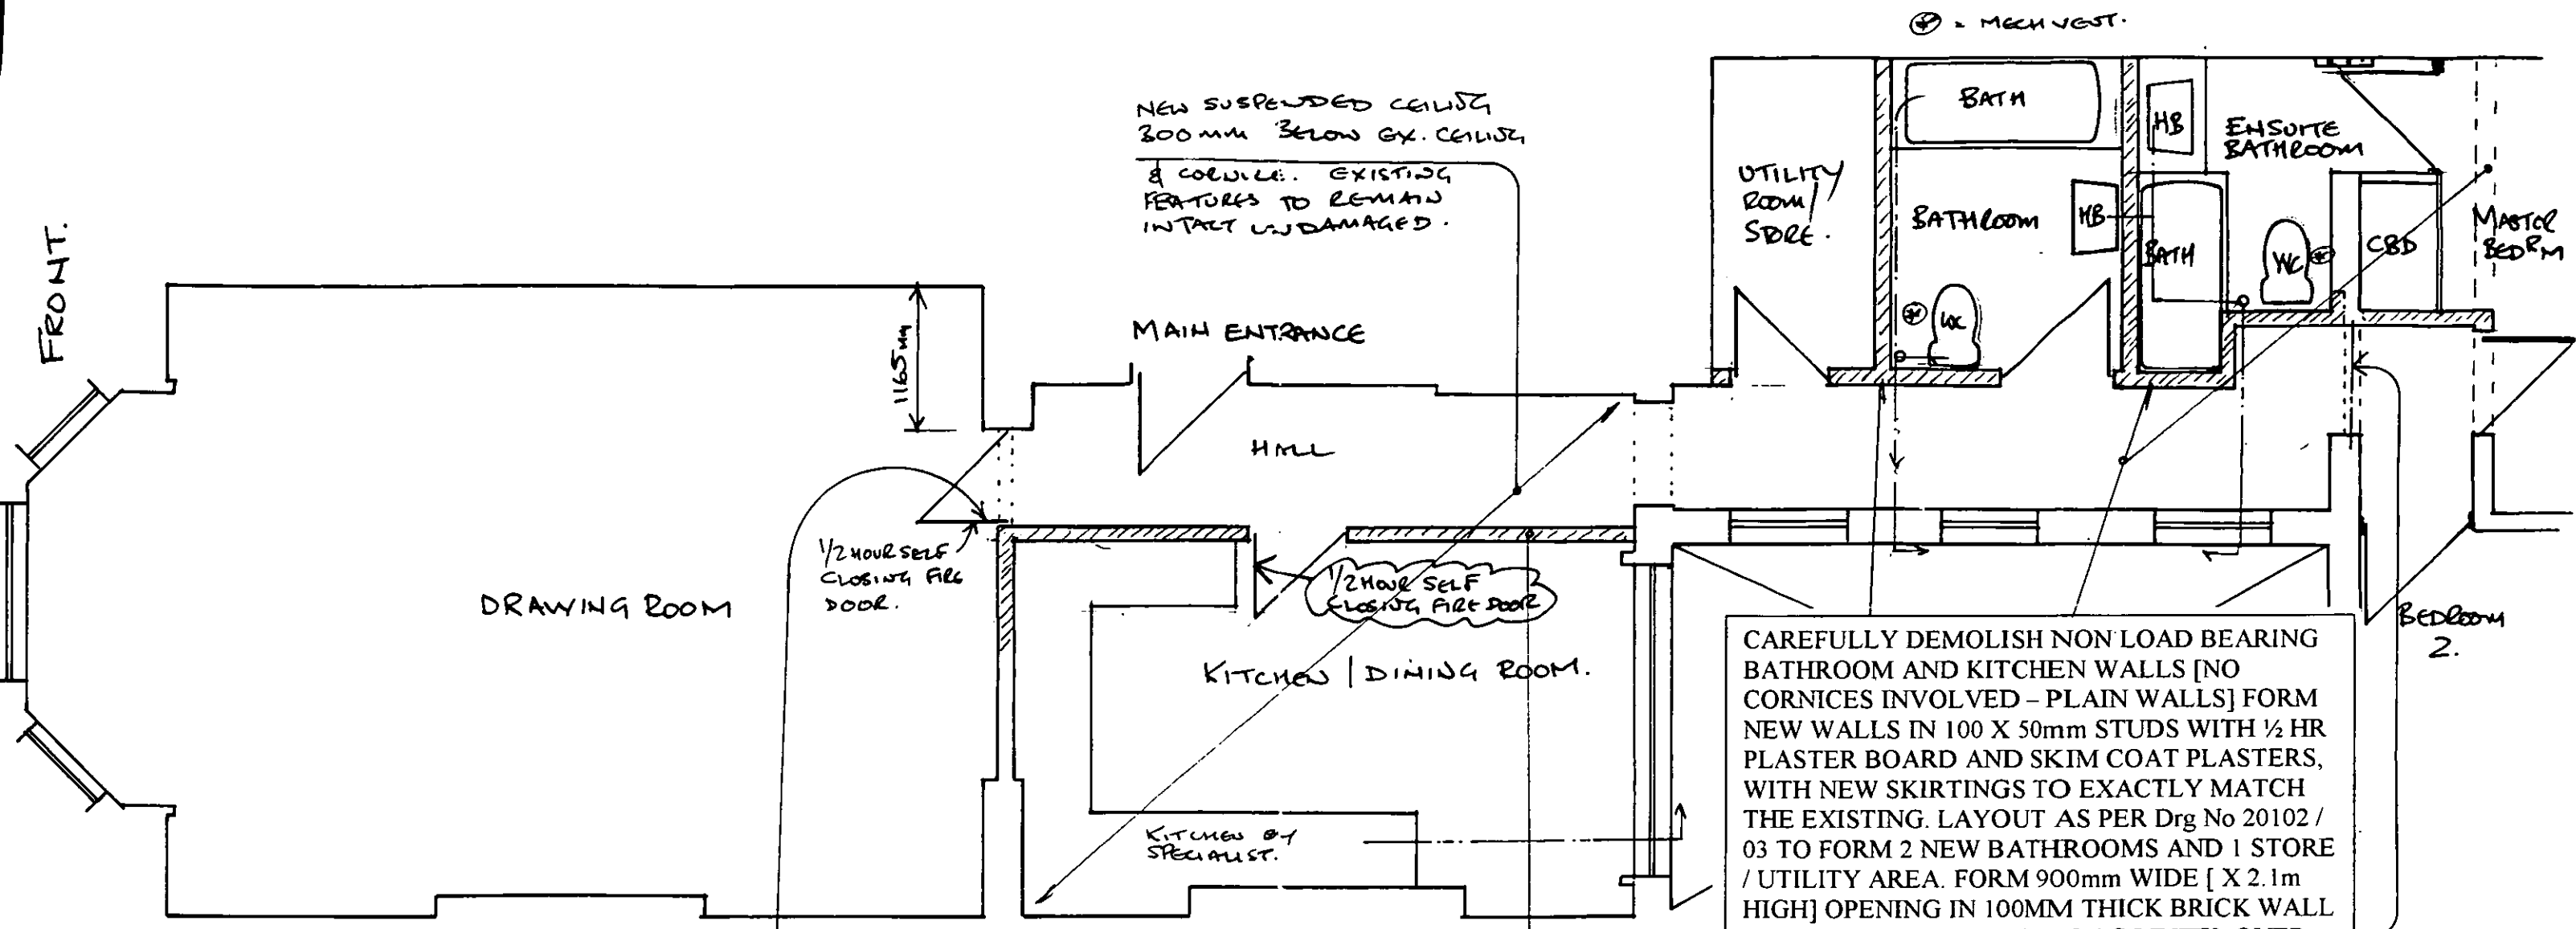 = MECH VENT.
NEW SUSPENDED CEILING
300 MM BELOW EX. CEILING
& CORNICE. EXISTING
FEATURES TO REMAIN
INTACT UNDAMAGED.
FRONT.
1165 MM
MAIN ENTRANCE
HALL
UTILITY
ROOM/
STORE.
BATH
BATHROOM
HB
WC
HB
ENSUITE
BATHROOM
BATH
WC
CBD
MASTER
BEDRM
1/2 HOUR SELF
CLOSING FIRE
DOOR.
1/2 HOUR SELF
CLOSING FIRE DOOR
DRAWING ROOM
KITCHEN / DINING ROOM.
KITCHEN BY
SPECIALIST.
BEDROOM
2.
CAREFULLY DEMOLISH NON LOAD BEARING
BATHROOM AND KITCHEN WALLS [NO
CORNICES INVOLVED – PLAIN WALLS] FORM
NEW WALLS IN 100 X 50mm STUDS WITH ½ HR
PLASTER BOARD AND SKIM COAT PLASTERS,
WITH NEW SKIRTINGS TO EXACTLY MATCH
THE EXISTING. LAYOUT AS PER Drg No 20102 /
03 TO FORM 2 NEW BATHROOMS AND 1 STORE
/ UTILITY AREA. FORM 900mm WIDE [ X 2.1m
HIGH] OPENING IN 100MM THICK BRICK WALL